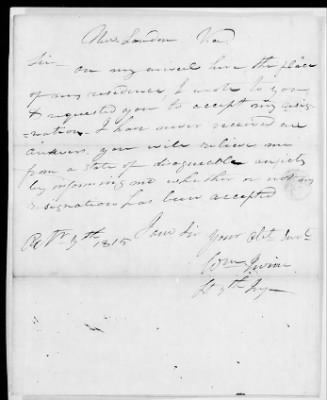 New London Va
Sir on my arrival here the place
of my residence, I wrote to you
& requested you to accept my resig-
nation. I have never received an
answer you will relieve me
from a state of disagreeable anxiety
by informing me whether or not my
resignation has been accepted
9th 1815 I am Sir your Obt Servt
Wm Irvine
Lt 9th Iny